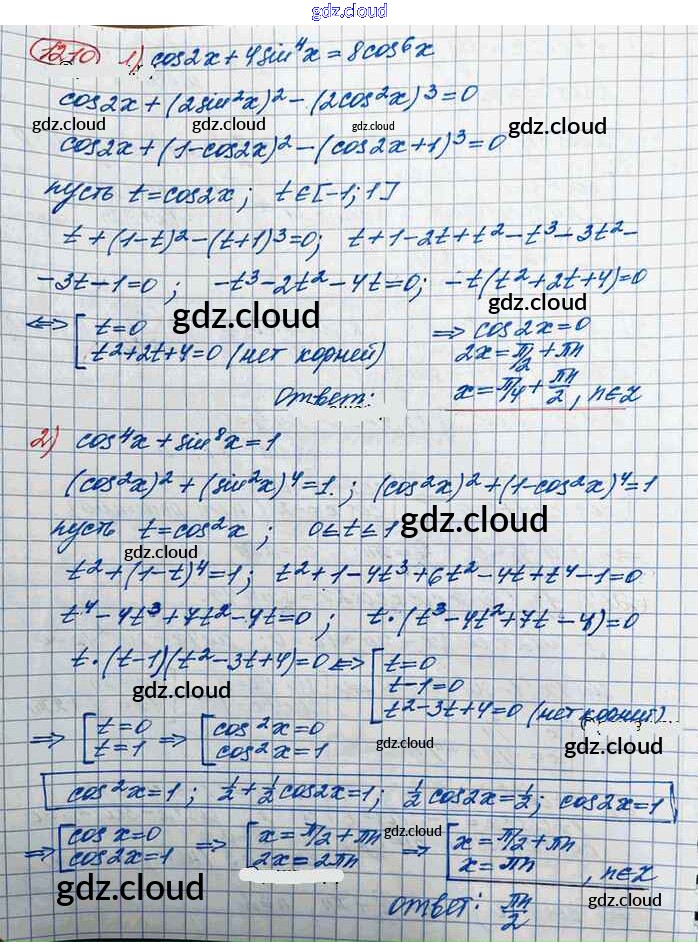 gdz.cloud
1210 1) cos2x + 4sin⁴x = 8cos⁶x
cos2x + (2sin²x)² - (2cos²x)³ = 0
gdz.cloud gdz.cloud gdz.cloud gdz.cloud
cos2x + (1-cos2x)² - (cos2x+1)³ = 0
пусть t = cos2x; t ∈ [-1; 1]
t + (1-t)² - (t+1)³ = 0; t + 1 - 2t + t² - t³ - 3t² -
- 3t - 1 = 0; -t³ - 2t² - 4t = 0; -t(t² + 2t + 4) = 0
gdz.cloud gdz.cloud
<=> [ t = 0 => cos2x = 0
t² + 2t + 4 = 0 (нет корней) 2x = π/2 + πn
ответ: x = π/4 + πn/2, n∈Z
2) cos⁴x + sin⁸x = 1
(cos²x)² + (sin²x)⁴ = 1.; (cos²x)² + (1-cos²x)⁴ = 1
пусть t = cos²x; 0 ≤ t ≤ 1 gdz.cloud
gdz.cloud
t² + (1-t)⁴ = 1; t² + 1 - 4t³ + 6t² - 4t + t⁴ - 1 = 0
gdz.cloud
t⁴ - 4t³ + 7t² - 4t = 0; t·(t³ - 4t² + 7t - 4) = 0
t·(t-1)(t² - 3t + 4) = 0 <=> [ t = 0
t - 1 = 0
gdz.cloud
t² - 3t + 4 = 0 (нет корней)
=> [ t = 0 => [ cos²x = 0
t = 1 cos²x = 1
gdz.cloud gdz.cloud
cos²x = 1; ½ + ½ cos2x = 1; ½ cos2x = ½; cos2x = 1
gdz.cloud
=> [ cos x = 0 => [ x = π/2 + πn => [ x = π/2 + πn
cos2x = 1 2x = 2πn x = πn , n∈Z
gdz.cloud gdz.cloud
ответ: πn/2